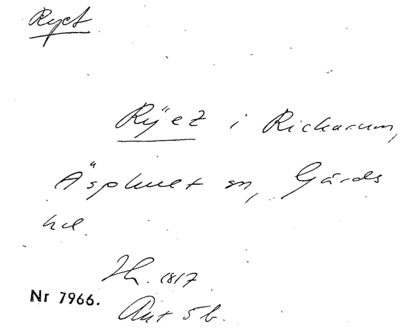 Ryet
Rÿet i Rickarum,
Äsphult sn, Gärds
hd.
Jh. 1817
Nr 7966.
Ant 5b.